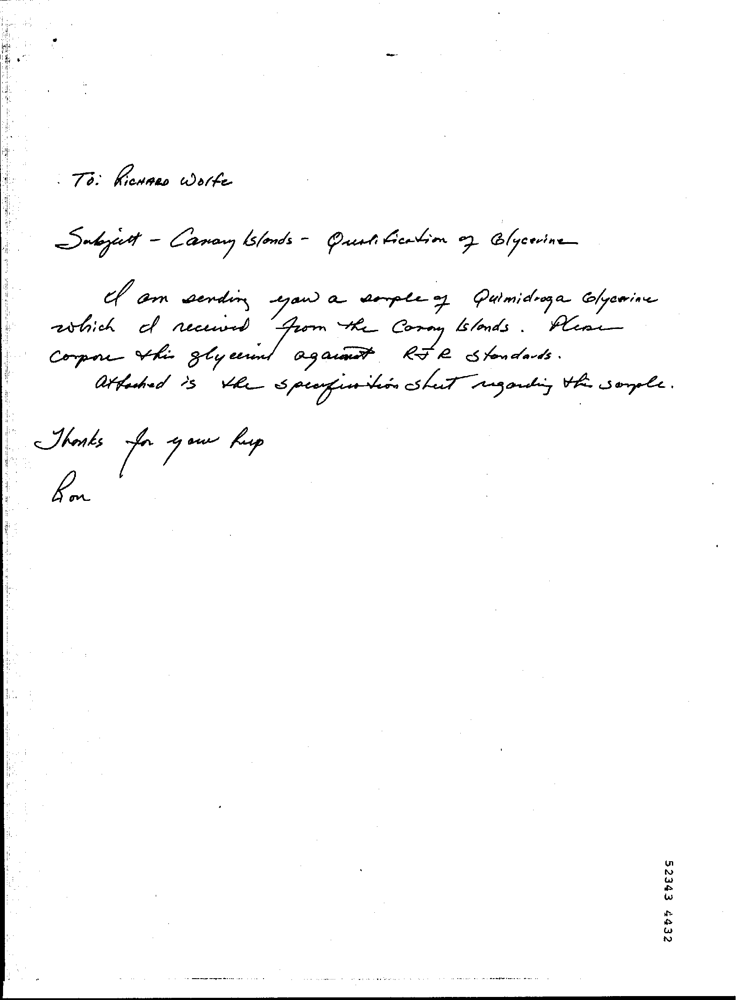 To: Richard Wolfe
Subject - Canary Islands - Qualification of Glycerine
I am sending you a sample of Quimidroga Glycerine
which I received from the Canary Islands. Please
compare this glycerine against RJR Standards.
Attached is the specification sheet regarding this sample.
Thanks for your help
Ron
52343 4432